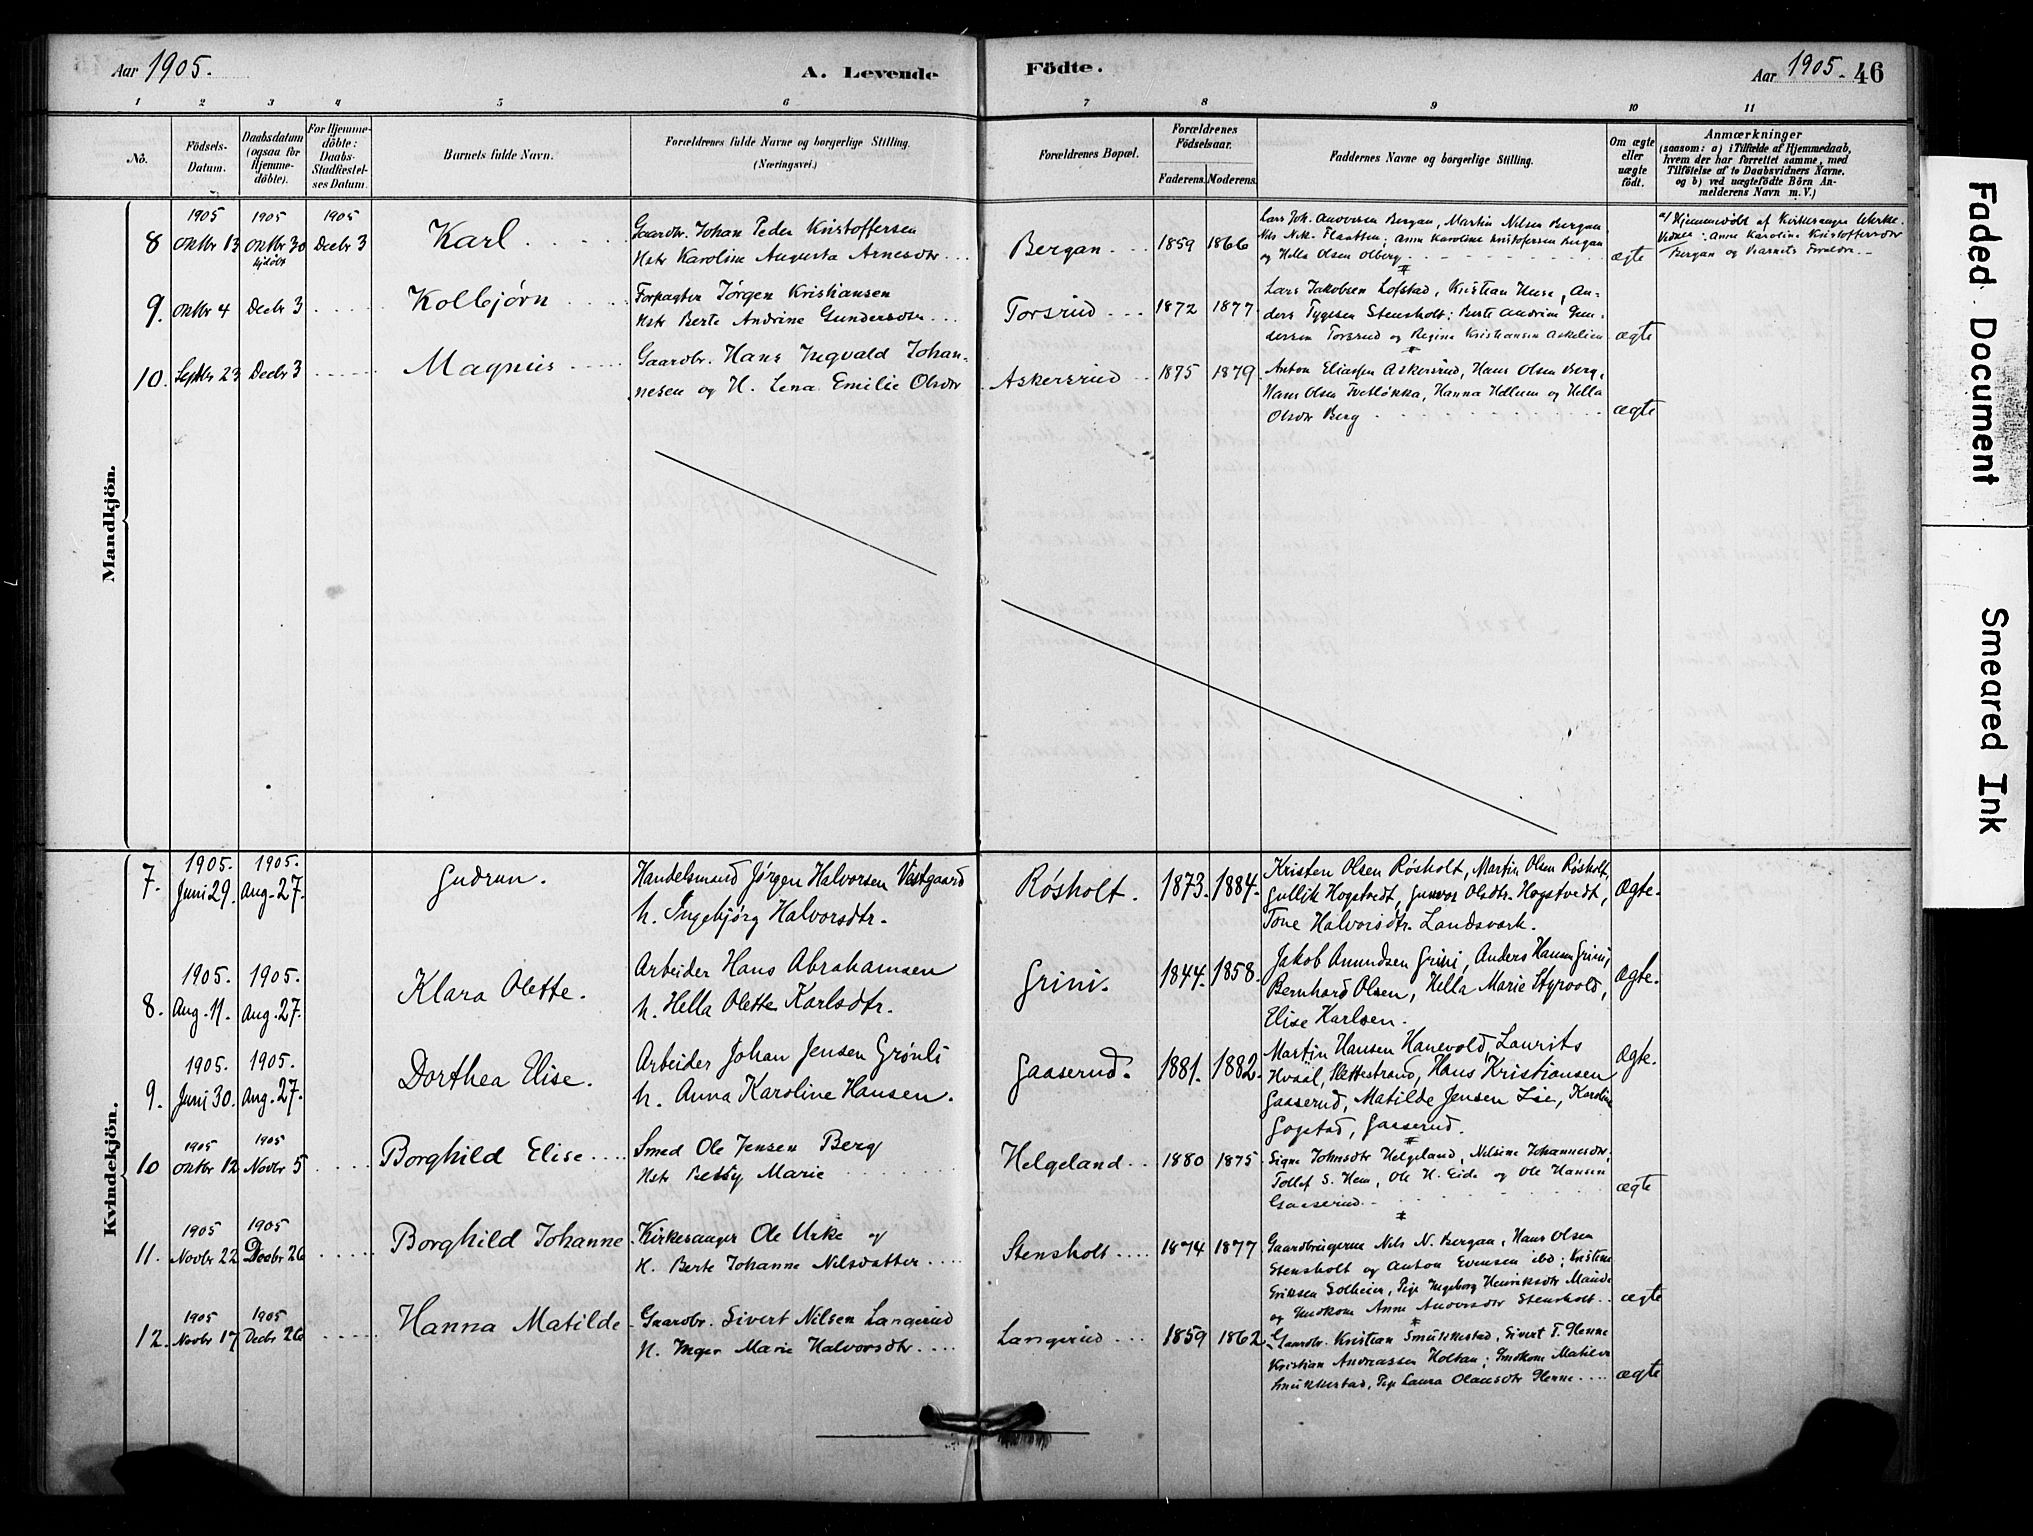 Aar 1905.
A. Levende
Födte.
Aar 1905. 46
1 2 3 4 5 6 7 8 9 10 11
No.
Födsels-Datum.
Daabsdatum (ogsaa for Hjemme-döbte).
For Hjemme-döbte: Daabs-Stadfestel-ses Datum.
Barnets fulde Navn.
Forældrenes fulde Navne og borgerlige Stilling.
(Næringsvei.)
Forældrenes Bopæl.
Forældrenes Födselsaar.
Faderens. Moderens.
Faddernes Navne og borgerlige Stilling.
Om ægte eller uægte födt.
Anmærkninger
(saasom: a) i Tilfælde af Hjemmedaab,
hvem der har forrettet samme, med
Tilföielse af to Daabsvidners Navne.
og b) ved uægtefödte Börn An-
melderens Navn m. V.)
Mandkjön.
1905 1905 1905
8 Oktbr 13 Oktbr 30 Decbr 3 Karl
hjdöbt
Gaardbr. Johan Peder Kristoffersen
Hstr Karoline Augusta Arnesdtr
Bergan 1859 1866
Lars Joh. Andersen Bergan, Martin Nilsen Bergan,
Nils Nik. Flaatten; Anne Karoline Kristofersen Bergan
og Hella Olsen Olberg
ægte
a/ Hjemmedöbt af Kirkesanger Urke.
Vidner: Anne Karoline Kristoffersdtr
Bergan og Barnets Forældre.
9. Oktbr 4 Decbr 3 Kolbjørn
Forpagter Jørgen Kristiansen
Hstr Berte Andrine Gundersdtr
Torsrud 1872 1877
Lars Jakobsen Lofstad, Kristian Huse, An-
ders Tygesen Stensholt; Berte Andrine Gun-
dersen Torsrud og Regine Kristiansen Askelien
ægte
10. Septbr 23 Decbr 3 Magnus
Gaardbr. Hans Ingvald Johan-
nesen og H. Lena Emilie Olsdtr
Askersrud 1875 1879
Anton Eliassen Askersrud, Hans Olsen Berg,
Hans Olsen Tvetløkka, Hanna Hellum og Hella
Olsdtr Berg
ægte
Kvindekjön.
1905. 1905.
7. Juni 29. Aug. 27. Gudrun.
Handelsmand Jørgen Halvorsen Vestgaard
h. Ingebjørg Halvorsdtr.
Røsholt. 1873. 1884.
Kristen Olsen Røsholt, Martin Olsen Røsholt,
Gullik Hogstvedt, Gunvor Olsdtr. Hogstvedt,
Tone Halvorsdtr. Landsverk.
Ægte.
1905. 1905.
8. Aug. 11. Aug. 27. Klara Olette.
Arbeider Hans Abrahamsen
h. Hella Olette Karlsdtr.
Grini. 1844. 1858.
Jakob Amundsen Grini, Anders Hansen Grini,
Bernhard Olsen, Hella Marie Styrvold,
Elise Karlsen.
Ægte.
1905. 1905.
9. Juni 30. Aug. 27. Dorthea Elise.
Arbeider Johan Jensen Grønli
h. Anna Karoline Hansen.
Gaaserud. 1881. 1882.
Martin Hansen Hanevold, Laurits
Hvaal, Slettestrand, Hans Kristiansen
Gaaserud, Matilde Jensen Lie, Karoline
Gogstad, Gaaserud.
Ægte.
1905 1905
10 Oktbr 12 Novbr 5 Borghild Elise
Smed Ole Jensen Berg
Hstr Betty Marie
Helgeland 1880 1875
Signe Johnsdtr Helgeland, Nilsine Johannesdtr,
Tollef S. Hem, Ole H. Eide og Ole Hansen
Gaaserud
ægte
1905 1905
11. Novbr 22 Decbr 26 Borghild Johanne
Kirkesanger Ole Urke og
H. Berte Johanne Nilsdatter
Stensholt 1874 1877
Gaardbrugerne Nils N. Bergan, Hans Olsen
Stensholt og Anton Evensen ibd; Kristine
Eriksen Solheim, Pige Ingeborg Henriksdtr
og Gmdkone Anne Andersdtr Stensholt
ægte
1905 1905
12. Novbr 17 Decbr 26 Hanna Matilde
Gaardbr. Sivert Nilsen Langerud
H. Inger Marie Halvorsdtr
Langerud 1859 1862
Gaardbr. Kristian Smukkestad, Sivert T. Henne
Kristian Andreassen Holtan; Gmdkone Matilde
Smukkestad, Pige Laura Olausdtr Henne
ægte
Faded Document
Smeared Ink